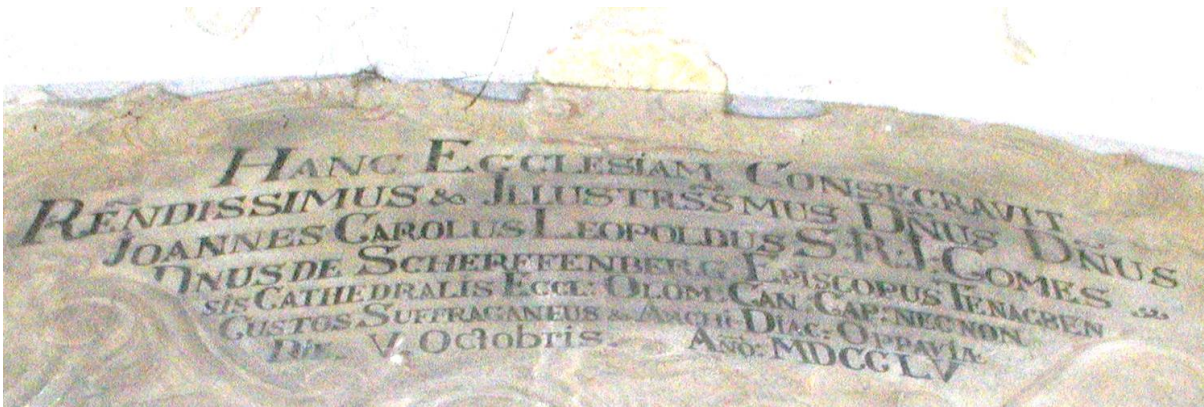 HANC ECCLESIAM CONSECRAVIT
REÑDISSIMUS & JLLUSTRSSMUS DÑUS DÑUS
JOANNES CAROLUS LEOPOLDUS S.R.J. COMES
DNUS DE SCHERFFENBERG EPISCOPUS TENAGBEN
SIS CATHEDRALIS ECCL: OLOM: CAN: CAP: NEC NON
CUSTOS SUFFRAGANEUS & ARCHI DIAC: OPPAVIÆ
DIE V. Octobris. AÑO: MDCCLV